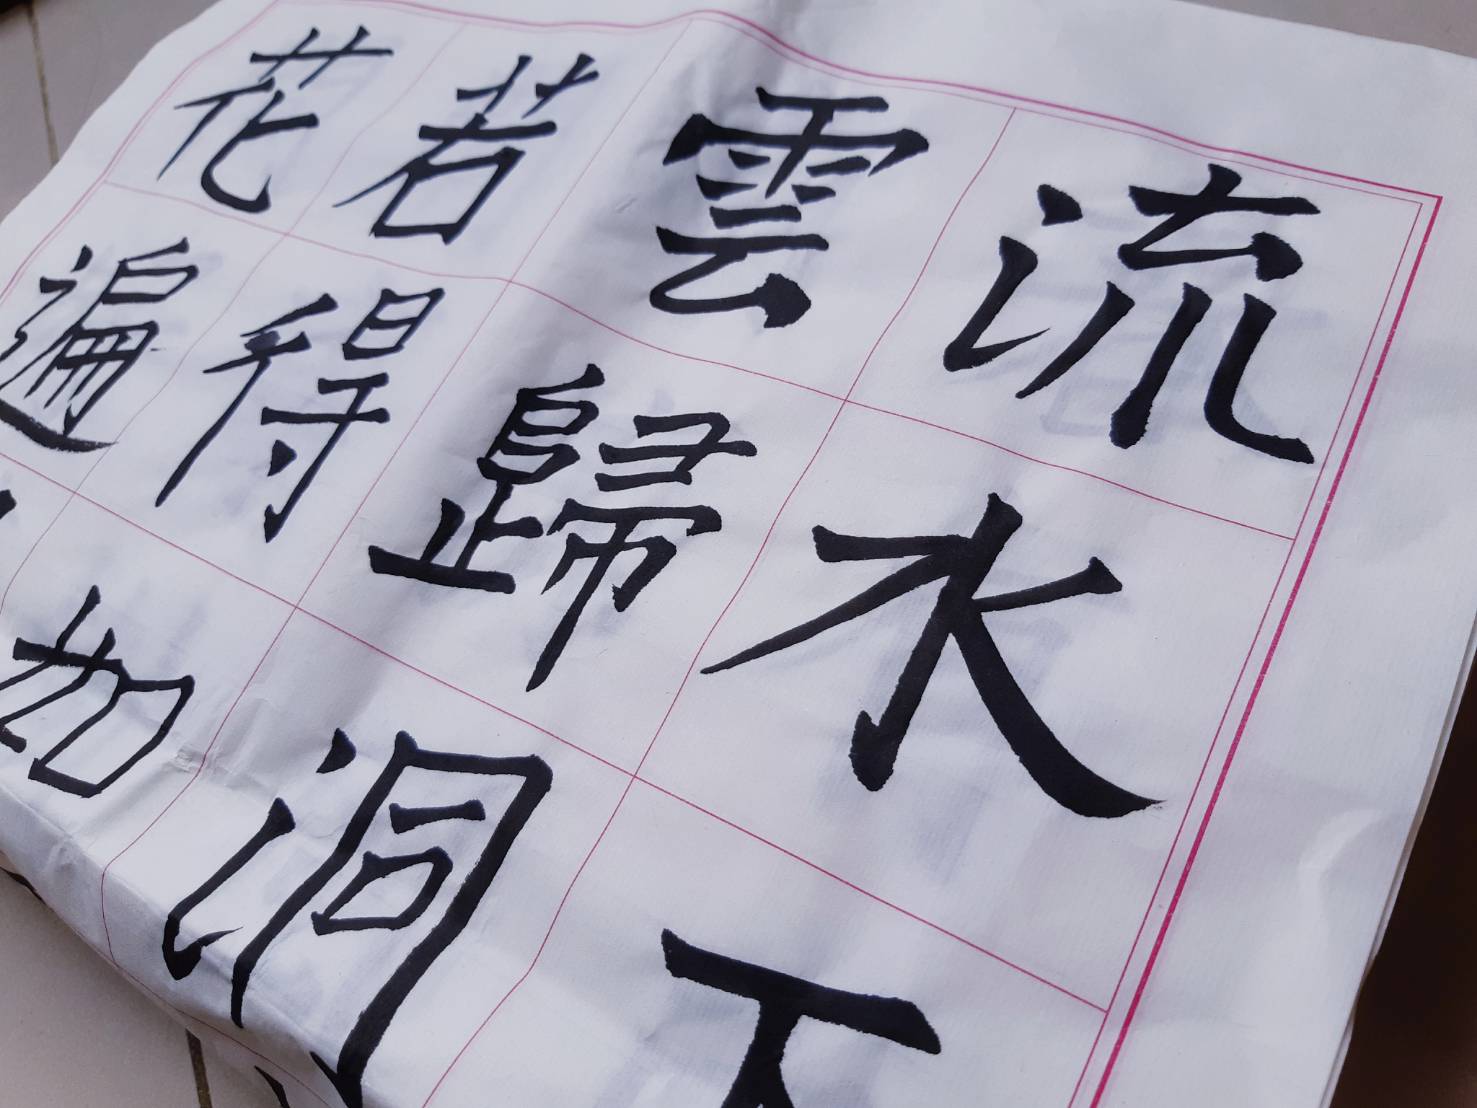 流水
雲歸洞
若得
花遍